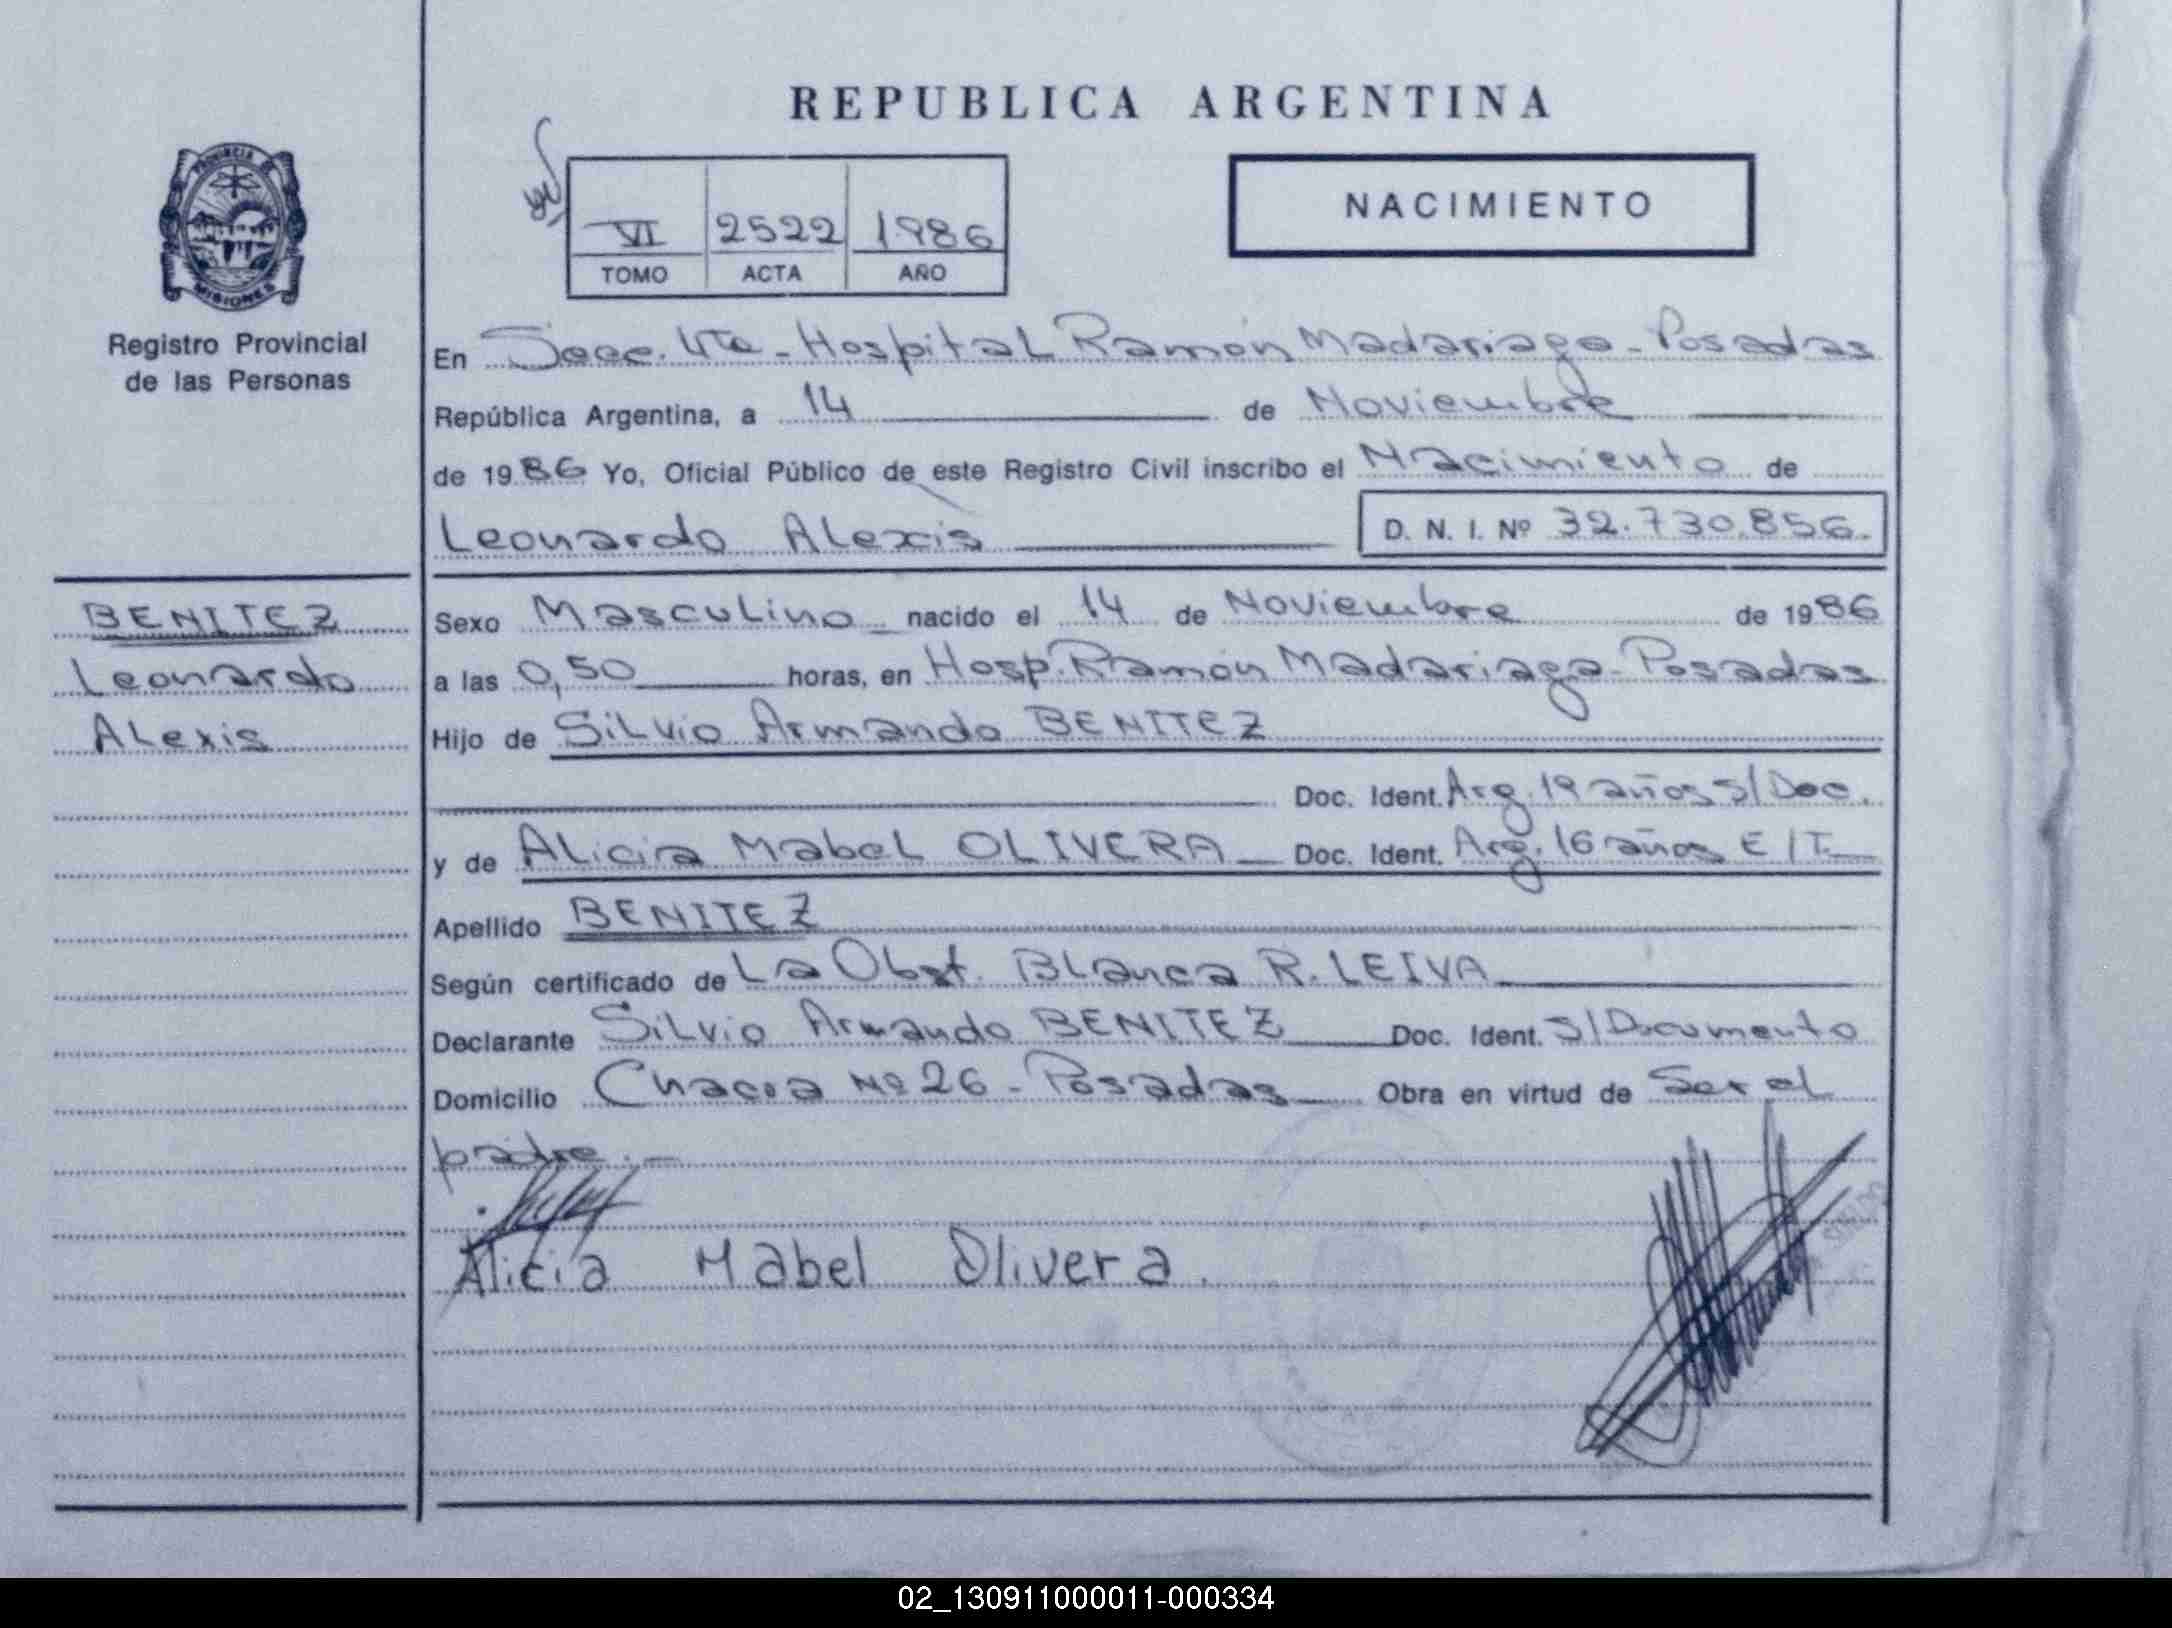 REPUBLICA ARGENTINA
PROVINCIA DE
MISIONES
Registro Provincial
de las Personas
VI 2522 1986
TOMO ACTA AÑO
NACIMIENTO
En Secc. 4ta - Hospital Ramón Madariaga - Posadas
República Argentina, a 14 de Noviembre
de 1986 Yo, Oficial Público de este Registro Civil inscribo el Nacimiento de
Leonardo Alexis D. N. I. Nº 32.730.856.
BENITEZ
Leonardo
Alexis
Sexo Masculino nacido el 14 de Noviembre de 1986
a las 0,50 horas, en Hosp. Ramón Madariaga - Posadas
Hijo de Silvio Armando BENITEZ
Doc. Ident. Arg. 19 años S/Doc.
y de Alicia Mabel OLIVERA Doc. Ident. Arg. 16 años E/T.
Apellido BENITEZ
Según certificado de La Obst. Blanca R. LEIVA
Declarante Silvio Armando BENITEZ Doc. Ident. S/Documento
Domicilio Chacra Nº 26 - Posadas Obra en virtud de Ser el
padre.-
Alicia Mabel Olivera.
02_130911000011-000334